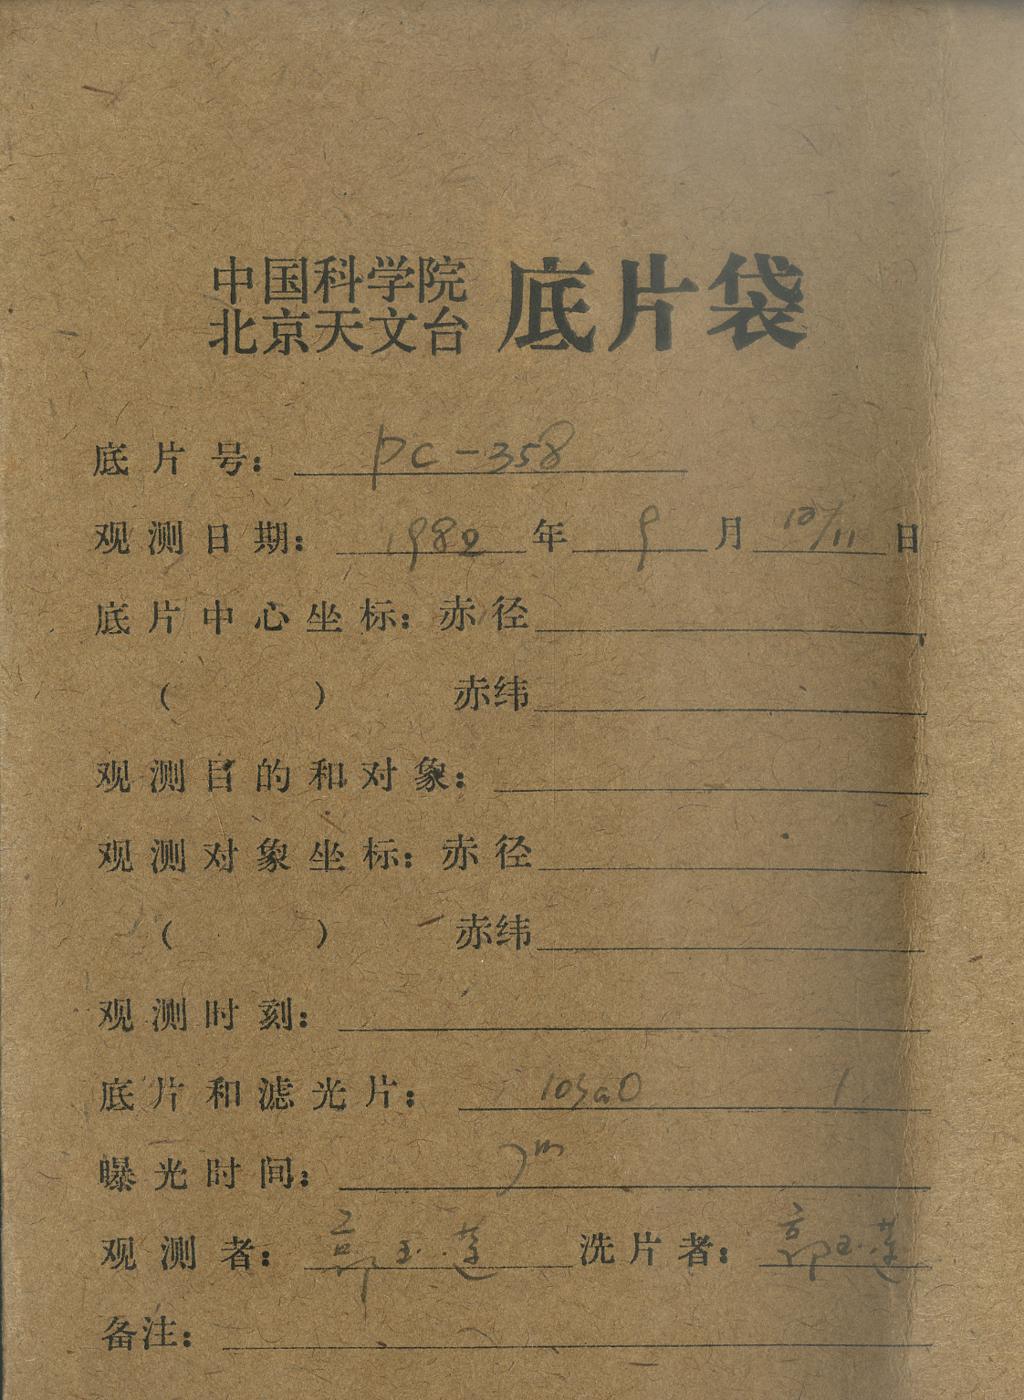 中国科学院
北京天文台 底片袋
底片号: PC-358
观测日期: 1982年 9月 10/11日
底片中心坐标:赤径
( ) 赤纬
观测目的和对象:
观测对象坐标:赤径
( ) 赤纬
观测时刻:
底片和滤光片: 103aO /
曝光时间: m
观测者: 郭玉莲 洗片者: 郭玉莲
备注: